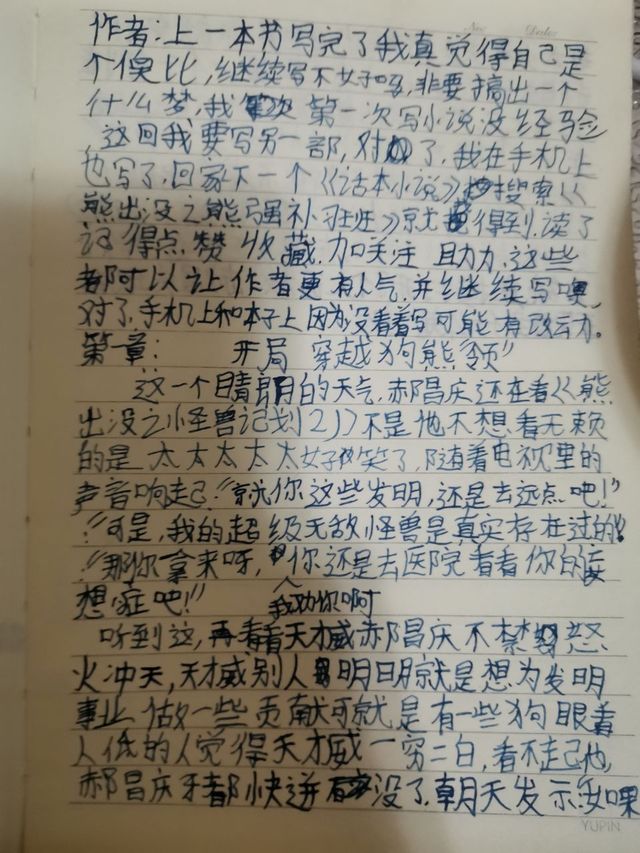 作者:上一本书写完了我真觉得自己是
个傻比,继续写不好吗,非要搞出一个
什么梦,我第一次写小说没经验
,这回我要写另一部,对了,我在手机上
也写了,回家下一个《话本小说》搜索《
熊出没之熊强补班班》就得到,读了
记得点赞 收藏,加关注 助力,这些
都阿以让作者更有人气,并继续写噢,
对了,手机上和本子上因为没看着写可能有改动。
第一章: 开局 穿越狗熊“领”
这一个晴朗的天气,郝昌庆还在看《熊
出没之怪兽记划2》》不是他不想看无赖
的是太太太太太好笑了,随着电视里的
声音响起:“就你这些发明,还是去远点吧!”
“可是,我的超级无敌怪兽是真实存在过的!
“那你拿来呀,我劝你啊你还是去医院看看你的妄
想症吧!”
听到这,再看着天才威郝昌庆不禁怒
火冲天,天才威别人明明就是想为发明
事业做一些贡献可就是有一些狗眼着
人低的人觉得天才威一穷二白,看不起他,
郝昌庆牙都快迸没了,朝天发示如果
YUPIN